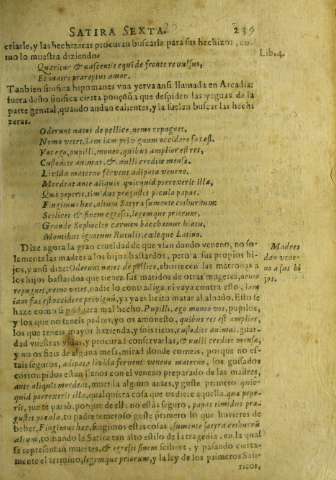 SATIRA SEXTA. 235
criarle, y las hechizeras procuran buscarla para sus hechizos, co-
mo lo muestra diziendo:
Lib. 4.
Quæritur & nascentis equi de fronte revulsus,
Et matri præreptus amor.
Tambien significa hipomanes una yerva ansi llamada en Arcadia:
fuera desto significa cierta ponçoña que despiden las yeguas de la
parte genital, quando andan calientes, y la suelen buscar las hechi
zeras.
Oderunt natos de pellice, nemo repugnet,
Nemo vetet. Iam iam privignum occidere fas est.
Vos ego, pupilli, moneo, quibus amplior est res,
Custodite animas, & nulli credite mensæ,
Livida materno fervent adipata veneno.
Mordeat ante aliquis quicquid porrexerit illa,
Quæ peperit, timidus prægustet pocula papas.
Fingimus hæc, altum Satyra sumente cothurnum:
Scilicet & finem egressi, legemque priorum,
Grande Sophocleo carmen bacchamur hiatu,
Montibus ignotum Rutulis, cæloque Latino.
Dize agora la gran crueldad de que van dando veneno, no so-
lamente las madres a los hijos bastardos, pero a sus propios hi-
jos, y ansi dize: Oderunt natos de pellice, aborrecen las matronas a
los hijos bastardos que tienen sus maridos de otras mugeres, nemo
Madres
dan vene-
no a sus hi
jos.
repugnet, nemo vetet, nadie lo contradiga, ni vaya contra esto, iam
iam fas est occidere privignum, ya ya es licito matar al alnado. Esto se
haze como si no fuera mal hecho. Pupilli, ego moneo vos, pupilos,
y los que no teneis padres, yo os amonesto, quibus res est amplior,
los que teneis mayor hazienda, y sois ricos, custodite animas, guar-
dad vuestras vidas, y procurad conservarlas, & nulli credite mensæ,
y no os fieis de alguna mesa, mirad donde comeis, porque no es-
tais seguros, adipata livida fervent veneno materno, los guisados
corrompidos estan llenos con el veneno preparado de las madres,
ante aliquis mordeat, muerda alguno antes, y guste primero quic-
quid porrexerit illa, qualquiera cosa que os diere aquella, quæ pepe-
rit, que te pario, porque de ella no estás seguro, papas timidus præ-
gustet pocula, tu padre temeroso guste primero lo que huvieres de
beber. Fingimus hæc, fingimos estas cosas, sumente satyra cothurnum
altum, tomando la Satira tan alto estilo de la tragedia, en la qual
se representan muertes, & egressi finem scilicet, y passando cierta-
mente el termino, legemque priorum, y la ley de los primeros Sati-
ricos,